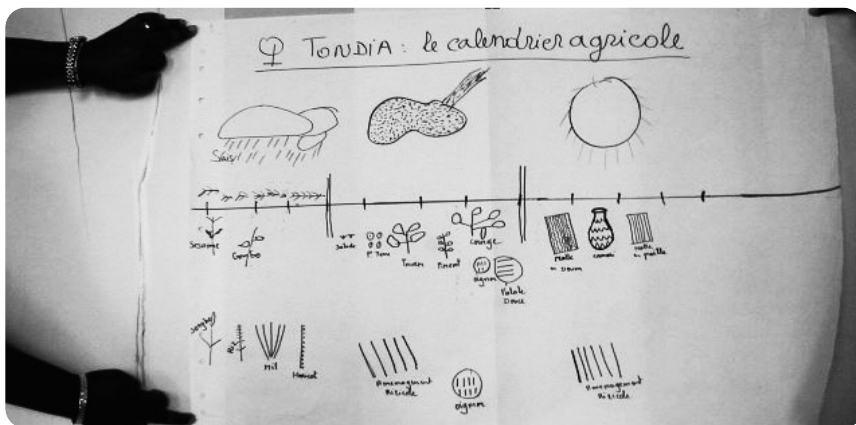 ♀ TONDIA : le calendrier agricole
Sésame
Gombo
Salade
P. Terre
Piment
courge
oignon
Patate
Douce
Natte
en Doum
canari
natte
en paille
Sorgho
Riz
Mil
Haricot
Amenagement
Rizicole
oignon
Amenagement
Rizicole